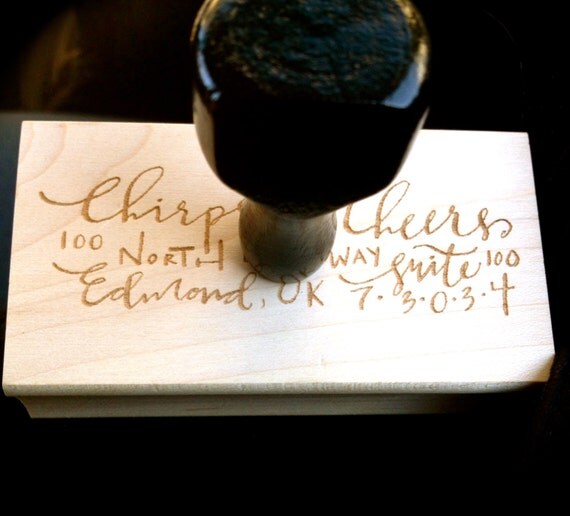 Chirp Cheers
100 North Way Suite 100
Edmond, OK 7.3.0.3.4